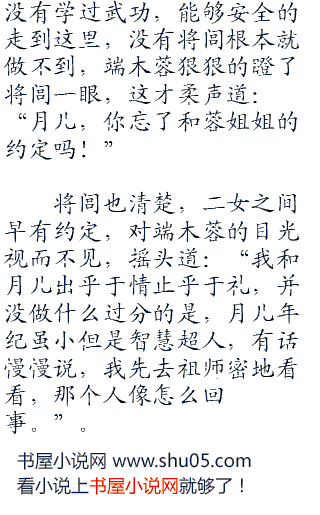 没有学过武功，能够安全的
走到这里，没有将闾根本就
做不到，端木蓉狠狠的瞪了
将闾一眼，这才柔声道：
“月儿，你忘了和蓉姐姐的
约定吗！”
将闾也清楚，二女之间
早有约定，对端木蓉的目光
视而不见，摇头道：“我和
月儿出乎于情止乎于礼，并
没做什么过分的是，月儿年
纪虽小但是智慧超人，有话
慢慢说，我先去祖师密地看
看，那个人像怎么回
事。”。
书屋小说网 www.shu05.com
看小说上书屋小说网就够了！